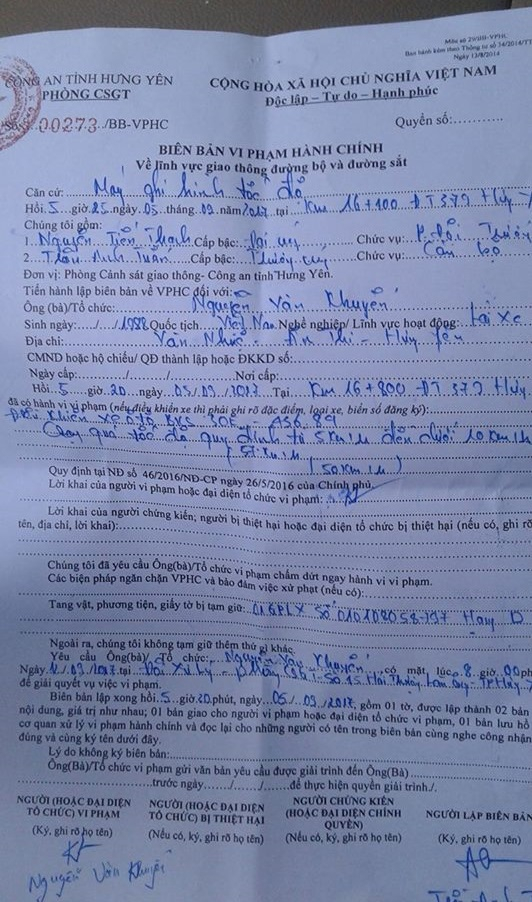 Mẫu số 29/BB-VPHC
Ban hành kèm theo Thông tư số 34/2014/TT
Ngày 13/8/2014
CÔNG AN TỈNH HƯNG YÊN
CỘNG HÒA XÃ HỘI CHỦ NGHĨA VIỆT NAM
PHÒNG CSGT
Độc lập – Tự do – Hạnh phúc
Số: 00273 /BB-VPHC
Quyển số:
BIÊN BẢN VI PHẠM HÀNH CHÍNH
Về lĩnh vực giao thông đường bộ và đường sắt
Căn cứ: Máy ghi hình tốc độ
Hồi 5 giờ 25 ngày 05 tháng 09 năm 2017 tại Km 16+100 ĐT 379
Chúng tôi gồm:
1. Nguyễn Tiến Thạch Cấp bậc: Đại úy Chức vụ: P. đội
2. Cấp bậc: Chức vụ: Cán bộ
Đơn vị: Phòng Cảnh sát giao thông- Công an tỉnh Hưng Yên.
Tiến hành lập biên bản về VPHC đối với:
Ông (bà)/Tổ chức: Nguyễn Văn Khuyến
Sinh ngày:..../..../1988 Quốc tịch Việt Nam Nghề nghiệp/ Lĩnh vực hoạt động: Lái xe
Địa chỉ: Vân Nhuế - Ân Thi - Hưng Yên
CMND hoặc hộ chiếu/ QĐ thành lập hoặc ĐKKD số:
Ngày cấp:..../..../.... Nơi cấp:
Hồi 5 giờ 20 ngày 05/09/2017 Tại Km 16+800 ĐT 379
đã có hành vi vi phạm (nếu điều khiển xe thì phải ghi rõ đặc điểm, loại xe, biển số đăng ký):
Điều khiển xe ô tô BKS 30E - 456.89
Chạy quá tốc độ quy định từ 5Km/h đến dưới 10Km/h
(50Km/h)
Quy định tại NĐ số 46/2016/NĐ-CP ngày 26/5/2016 của Chính phủ.
Lời khai của người vi phạm hoặc đại diện tổ chức vi phạm:
Lời khai của người chứng kiến; người bị thiệt hại hoặc đại diện tổ chức bị thiệt hại (nếu có, ghi rõ
tên, địa chỉ, lời khai):
Chúng tôi đã yêu cầu Ông(bà)/Tổ chức vi phạm chấm dứt ngay hành vi vi phạm.
Các biện pháp ngăn chặn VPHC và bảo đảm việc xử phạt (nếu có):
Tang vật, phương tiện, giấy tờ bị tạm giữ: 01 GPLX số Hạng D
Ngoài ra, chúng tôi không tạm giữ thêm thứ gì khác.
Yêu cầu Ông(bà)/ Tổ chức: Nguyễn Văn Khuyến có mặt, lúc 8 giờ 00 ph
Ngày 12/09/2017 tại Đội - phòng CSGT - Số 15 Hải Thượng Lãn Ông
để giải quyết vụ việc vi phạm.
Biên bản lập xong hồi 5 giờ 20 phút, ngày 05/09/2017, gồm 01 tờ, được lập thành 02 bản
nội dung, giá trị như nhau; 01 bản giao cho người vi phạm hoặc đại diện tổ chức vi phạm, 01 bản lưu hồ
cơ quan xử lý vi phạm hành chính và đọc lại cho những người có tên trong biên bản cùng nghe công nhận
đúng và cùng ký tên dưới đây.
Lý do không ký biên bản:
Ông(Bà)/Tổ chức vi phạm gửi văn bản yêu cầu được giải trình đến Ông(Bà)
trước ngày..../..../.... để thực hiện quyền giải trình./.
NGƯỜI (HOẶC ĐẠI DIỆN TỔ CHỨC) VI PHẠM
(Ký, ghi rõ họ tên)
Nguyễn Văn Khuyến
NGƯỜI (HOẶC ĐẠI DIỆN TỔ CHỨC) BỊ THIỆT HẠI
(Nếu có, ký, ghi rõ họ tên)
NGƯỜI CHỨNG KIẾN
(HOẶC ĐẠI DIỆN CHÍNH QUYỀN)
(Nếu có, ký, ghi rõ họ tên)
NGƯỜI LẬP BIÊN BẢN
(Ký, ghi rõ họ tên)